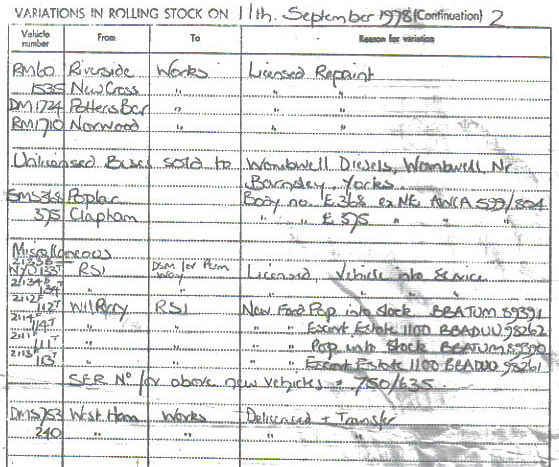 VARIATIONS IN ROLLING STOCK ON 11th. September 1978 (Continuation) 2
Vehicle number From To Reason for variation
RM60 Riverside Works Licensed Repaint
1535 New Cross " " "
DM1724 Potters Bar " " "
RM1710 Norwood " " "
Unlicensed Buses sold to Wombwell Diesels, Wombwell, Nr
Barnsley, Yorks.
SMS368 Poplar Body no. E368 ex NE AWCA 599/804
375 Clapham " " E375 "
Miscellaneous
2133B
NYD133T RSI DSM for Perm Licensed, Vehicle into Service
2134B
134T " " " " "
2112F
112T Wil Perry RSI New Ford Pop into stock BBATUM 89391
2114F
114T " " " " Escort Estate 1100 BBADUU 98262
2111F
111T " " " " Pop into Stock BBATUM 89390
2113F
113T " " " " Escort Estate 1100 BBADUU 98261
SER No for above new vehicles = 750/635.
DMS753 West Ham Works Delicensed + Transfer
240 " " " "